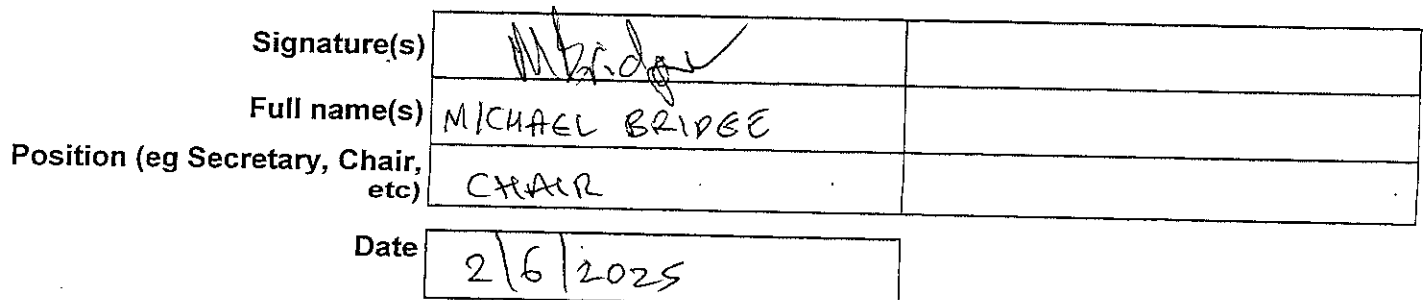 Signature(s) MBridge
Full name(s) MICHAEL BRIDGE
Position (eg Secretary, Chair,
etc) CHAIR
Date 2/6/2025